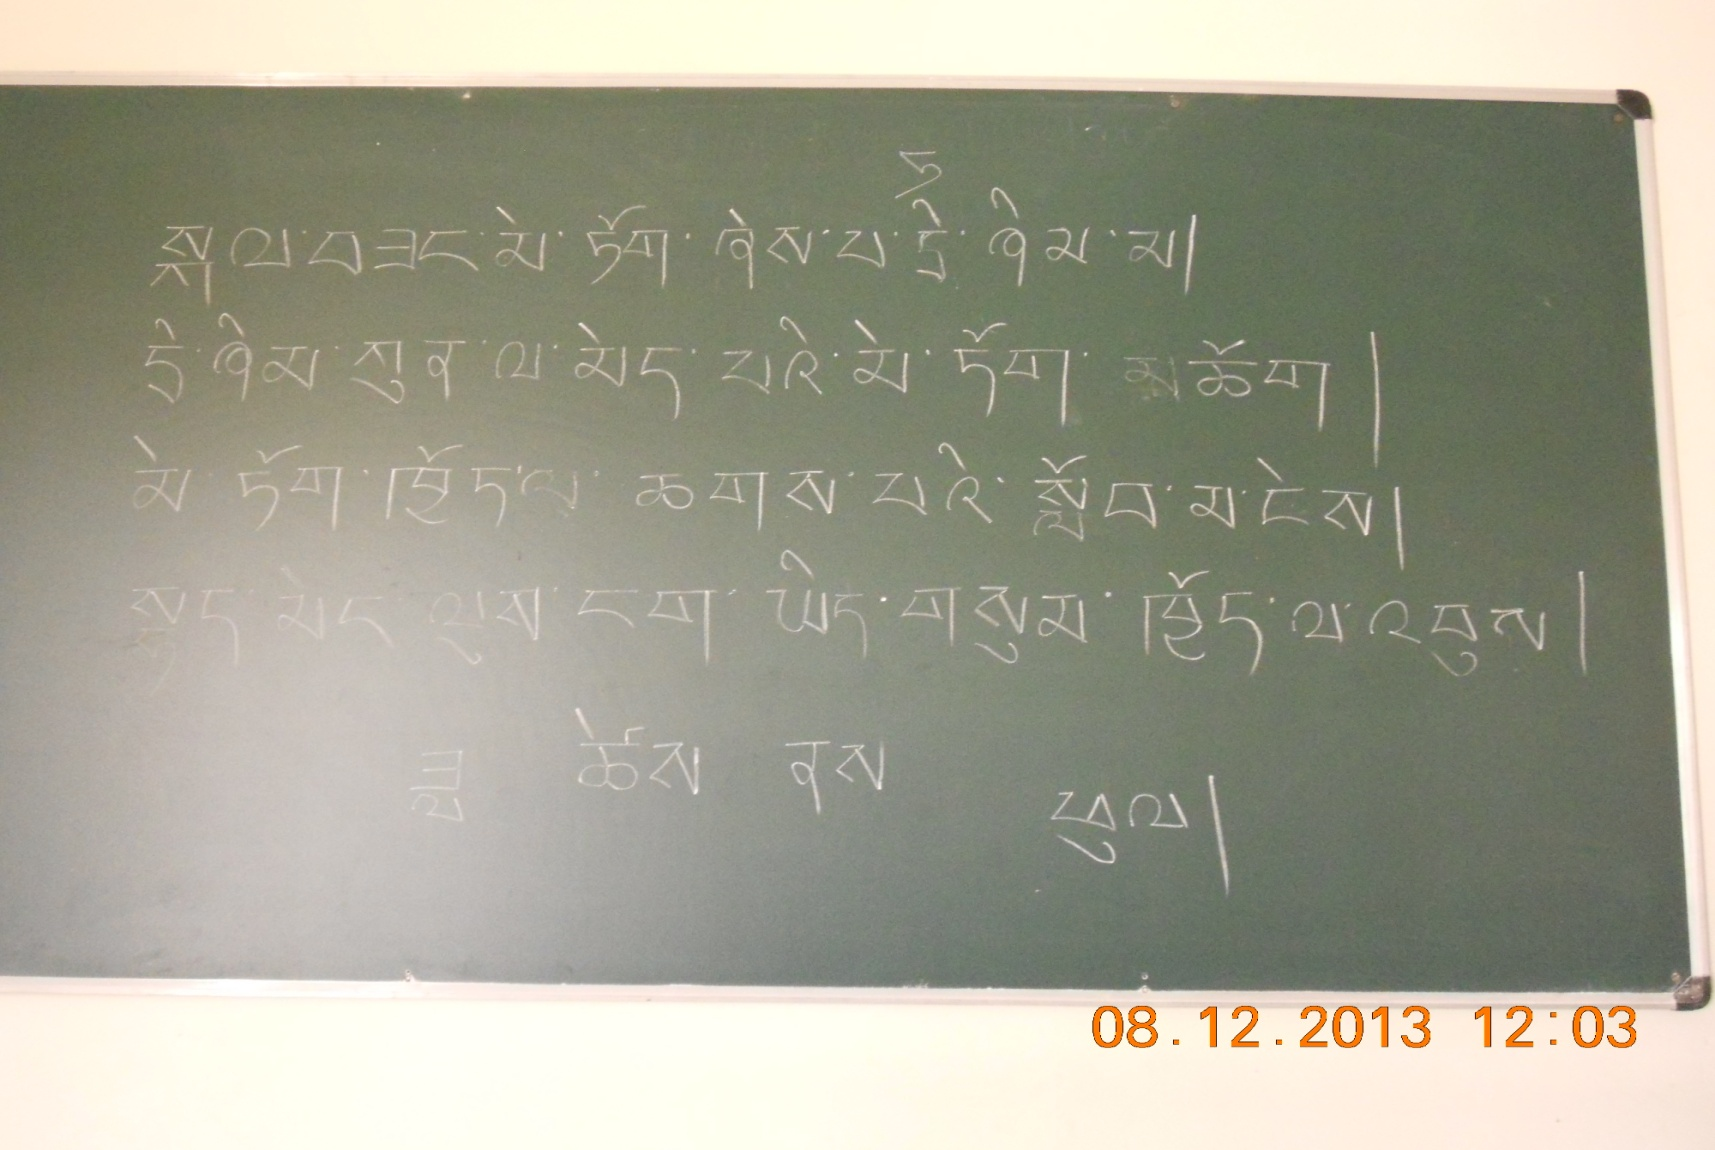 ད
སྐལ་བཟང་མེ་ཏོག་ཞེས་པ་དྲི་ཞིམ་མ།
དྲི་ཞིམ་ཀུན་ལ་མེད་པའི་མེ་ཏོག་མཆོག།
མེ་ཏོག་ཁྱོད་ལ་ཆགས་པའི་སློབ་མ་ངེས།
སྟད་མེད་ལུས་ངག་ཡིད་གསུམ་ཁྱོད་ལ་འབུས།
ཟླ་ ཚེས་ ནས་ ཕུལ།
08.12.2013 12:03